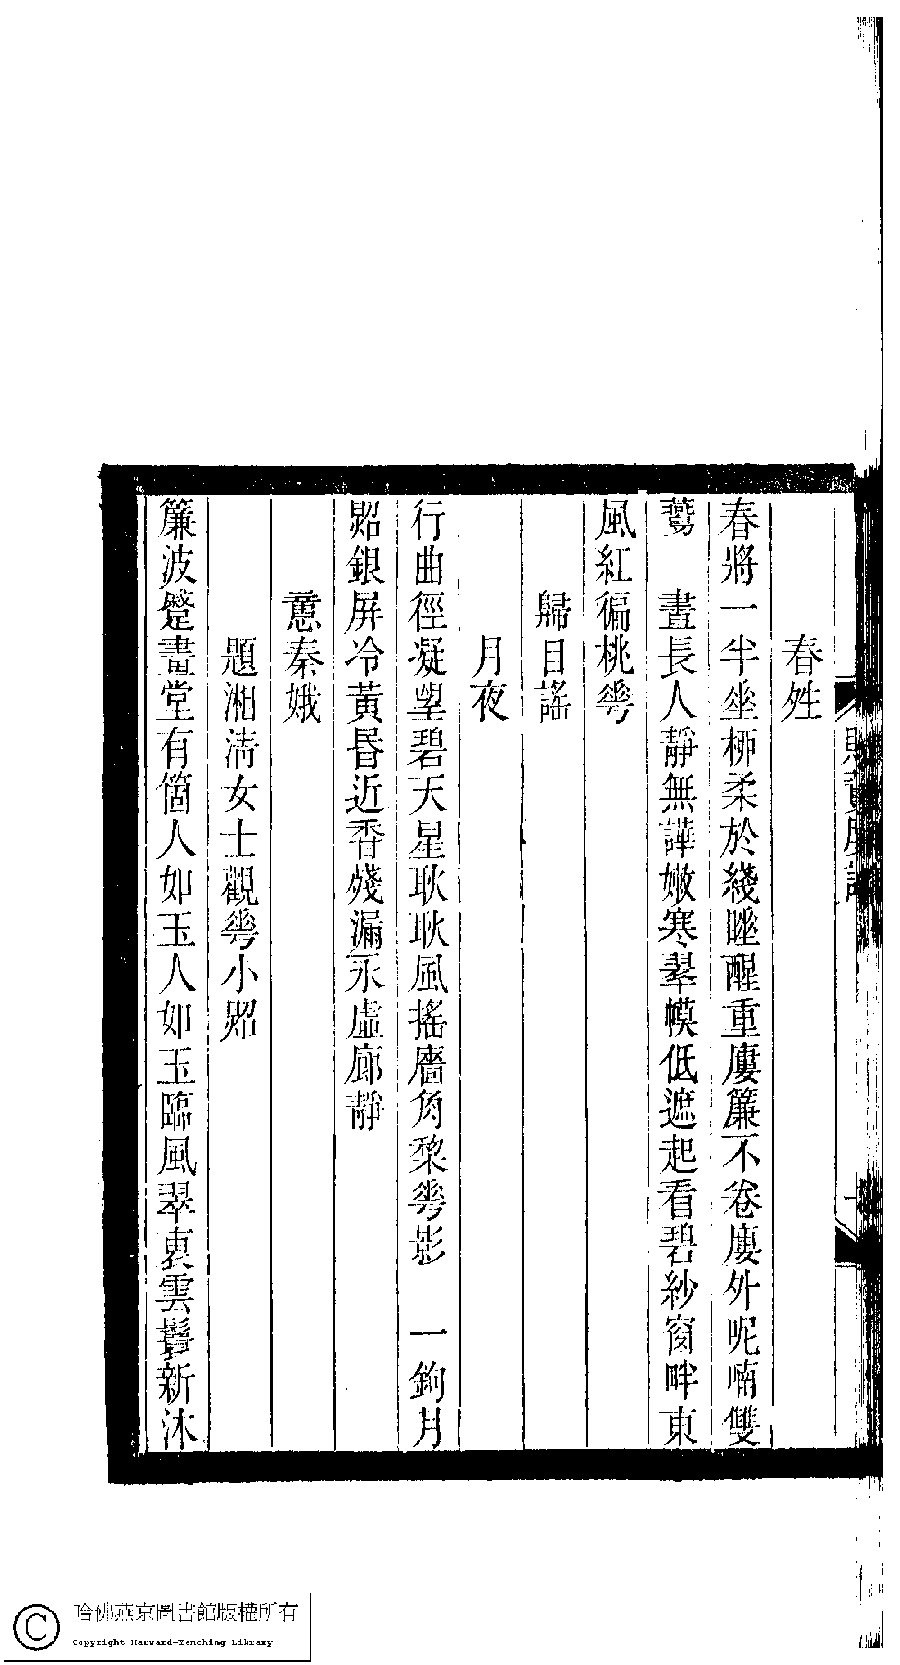 春姓
春將一半坐柳柔於綫睡醒重廔簾不卷廔外呢喃雙
鷰　晝長人靜無譁嫩寒翠幙低遮起看碧紗窗畔東
風紅徧桃蕚
歸自謠
月夜
行曲徑凝望碧天星耿耿風搖牆角棃蕚影　一鉤月
照銀屏冷黃昬近香殘漏永虛廊靜
憶秦娥
題湘淸女士觀蕚小照
簾波蹙畫堂有箇人如玉人如玉臨風翠袖雲鬟新沐
哈佛燕京圖書館版權所有
Copyright Harvard-Yenching Library